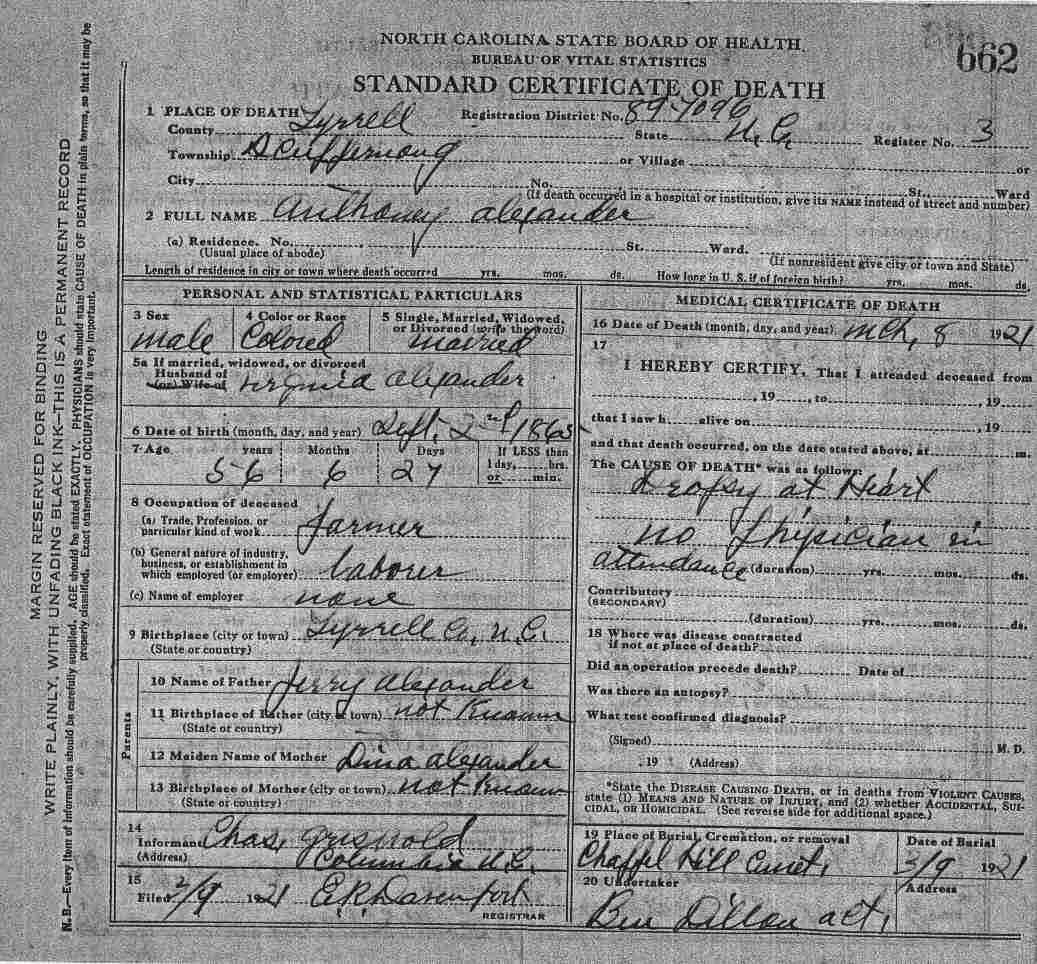 NORTH CAROLINA STATE BOARD OF HEALTH
BUREAU OF VITAL STATISTICS
662
STANDARD CERTIFICATE OF DEATH
1 PLACE OF DEATH Registration District No. 89-7096
County Tyrrell State N.C. Register No. 3
Township Scuppernong or Village or
City No. St. Ward
(If death occurred in a hospital or institution, give its NAME instead of street and number)
2 FULL NAME Anthoney Alexander
(a) Residence. No. St. Ward.
(Usual place of abode) (If nonresident give city or town and State)
Length of residence in city or town where death occurred yrs. mos. ds. How long in U. S. if of foreign birth? yrs. mos. ds.
PERSONAL AND STATISTICAL PARTICULARS
3 Sex 4 Color or Race 5 Single, Married, Widowed, or Divorced (write the word)
male Colored married
5a If married, widowed, or divorced
Husband of
(or) Wife of Virginia Alexander
6 Date of birth (month, day, and year) Sept. 2nd 1865
7 Age years Months Days If LESS than
1 day, hrs.
56 6 27 or min.
8 Occupation of deceased
(a) Trade, Profession, or
particular kind of work farmer
(b) General nature of industry,
business, or establishment in
which employed (or employer) laborer
(c) Name of employer none
9 Birthplace (city or town) Tyrrell Co, N.C.
(State or country)
Parents
10 Name of Father Jerry Alexander
11 Birthplace of Father (city or town) not Known
(State or country)
12 Maiden Name of Mother Dina Alexander
13 Birthplace of Mother (city or town) not Known
(State or country)
14
Informant Chas, Grisnold
(Address) Columbia N.C.
15
Filed 2/9 1921 E.R. Davenport
REGISTRAR
MEDICAL CERTIFICATE OF DEATH
16 Date of Death (month, day, and year) Mch, 8 1921
17
I HEREBY CERTIFY, That I attended deceased from
, 19 , to , 19
that I saw h alive on , 19
and that death occurred, on the date stated above, at m.
The CAUSE OF DEATH* was as follows:
Dropsy at Heart
no Physician in
attendance (duration) yrs. mos. ds.
Contributory
(SECONDARY)
(duration) yrs. mos. ds.
18 Where was disease contracted
if not at place of death?
Did an operation precede death? Date of
Was there an autopsy?
What test confirmed diagnosis?
(Signed) M. D.
, 19 (Address)
*State the DISEASE CAUSING DEATH, or in deaths from VIOLENT CAUSES,
state (1) MEANS AND NATURE OF INJURY, and (2) whether ACCIDENTAL, SUI-
CIDAL, OR HOMICIDAL. (See reverse side for additional space.)
19 Place of Burial, Cremation, or removal Date of Burial
Chappel Hill Cemet, 3/9 1921
20 Undertaker Address
Ben Dillon act,
MARGIN RESERVED FOR BINDING
WRITE PLAINLY, WITH UNFADING BLACK INK—THIS IS A PERMANENT RECORD
N. B.—Every item of information should be carefully supplied. AGE should be stated EXACTLY. PHYSICIANS should state CAUSE OF DEATH in plain terms, so that it may be
properly classified. Exact statement of OCCUPATION is very important.